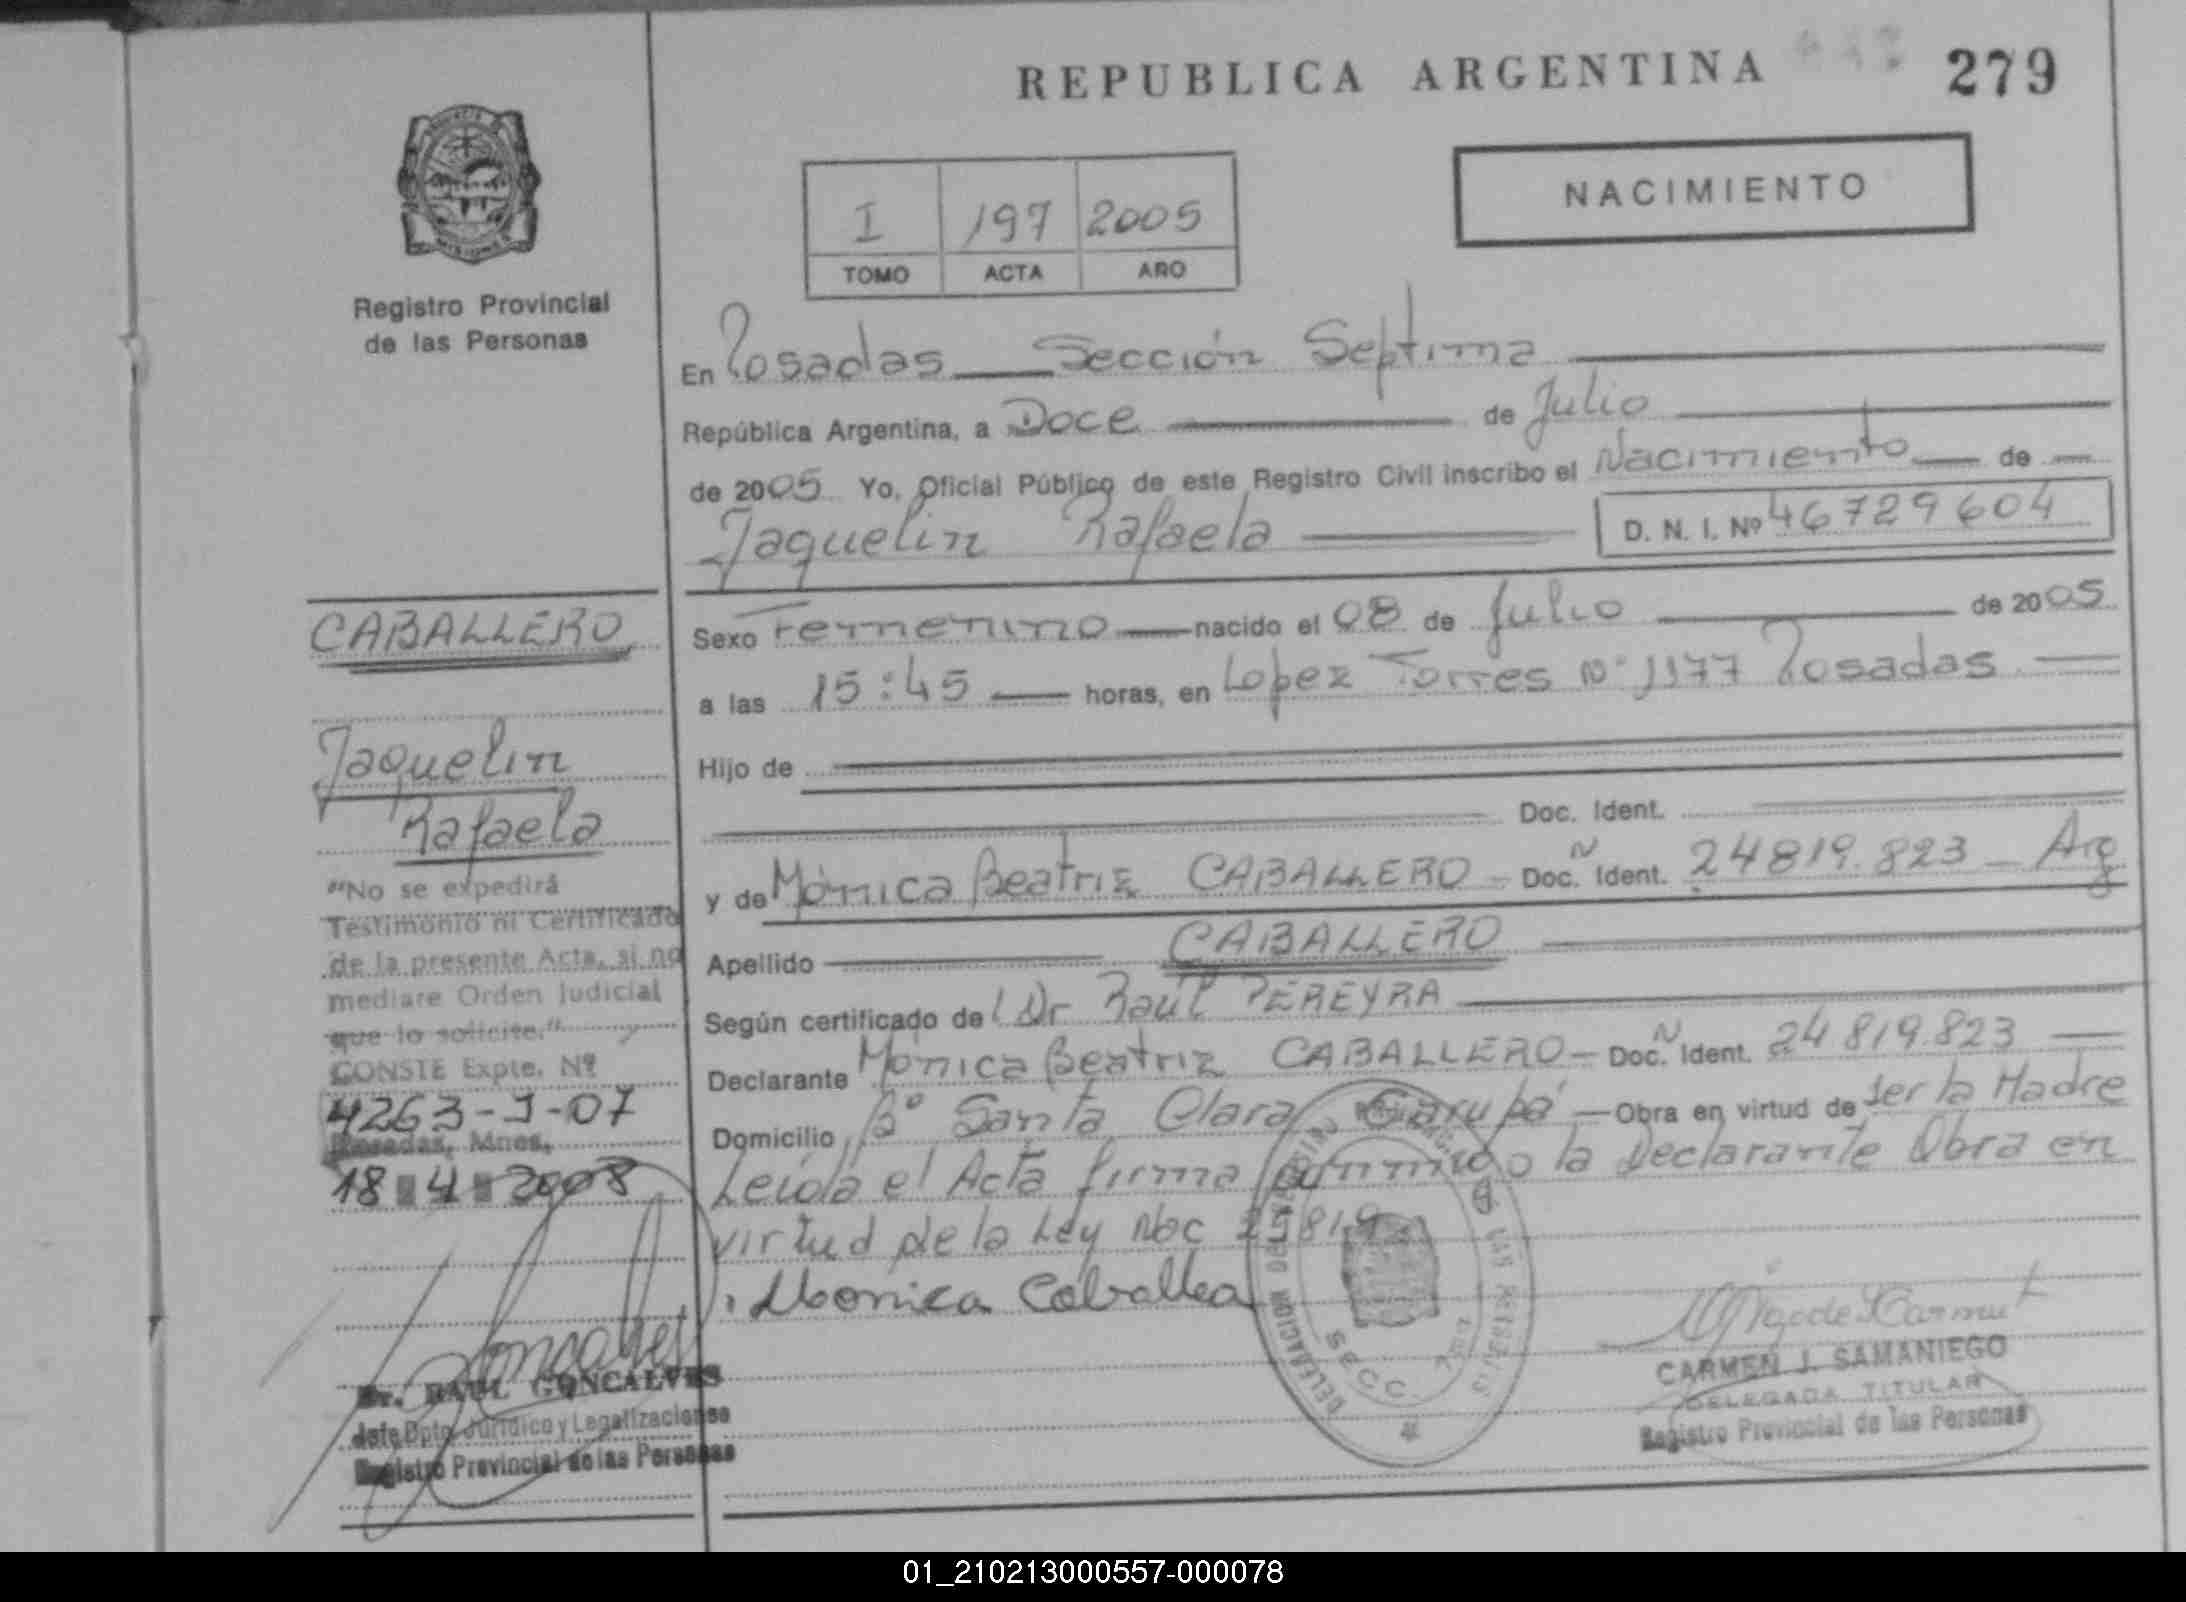 REPUBLICA ARGENTINA
279
NACIMIENTO
I 197 2005
TOMO ACTA AÑO
Registro Provincial
de las Personas
En Posadas Sección Septima
República Argentina, a Doce de Julio
de 2005 Yo, Oficial Público de este Registro Civil inscribo el Nacimiento de
Jaquelin Rafaela D. N. I. Nº 46729604
Sexo Femenino nacido el 08 de Julio de 2005
a las 15:45 horas, en Lopez Torres Nº 1177 Posadas
Hijo de
Doc. Ident.
y de Mónica Beatriz CABALLERO - Doc. N Ident. 24819.823 - Arg
Apellido CABALLERO
Según certificado del Dr Raúl PEREYRA
Declarante Mónica Beatriz CABALLERO - Doc. N Ident. 24819.823
Domicilio Bº Santa Clara Garupá - Obra en virtud de ser la Madre
Leida el Acta firma conmigo la Declarante Obra en
virtud de la Ley Nac 25819
Monica Caballero
CABALLERO
Jaquelin
Rafaela
"No se expedirá
Testimonio ni Certificado
de la presente Acta, si no
mediare Orden Judicial
que lo solicite."
CONSTE Expte. Nº
4263-J-07
Posadas, Mnes,
18 4 2008
Dr. RAUL GONCALVES
Jefe Dpto. Jurídico y Legalizaciones
Registro Provincial de las Personas
SECC.
CARMEN J. SAMANIEGO
DELEGADA TITULAR
Registro Provincial de las Personas
01_210213000557-000078